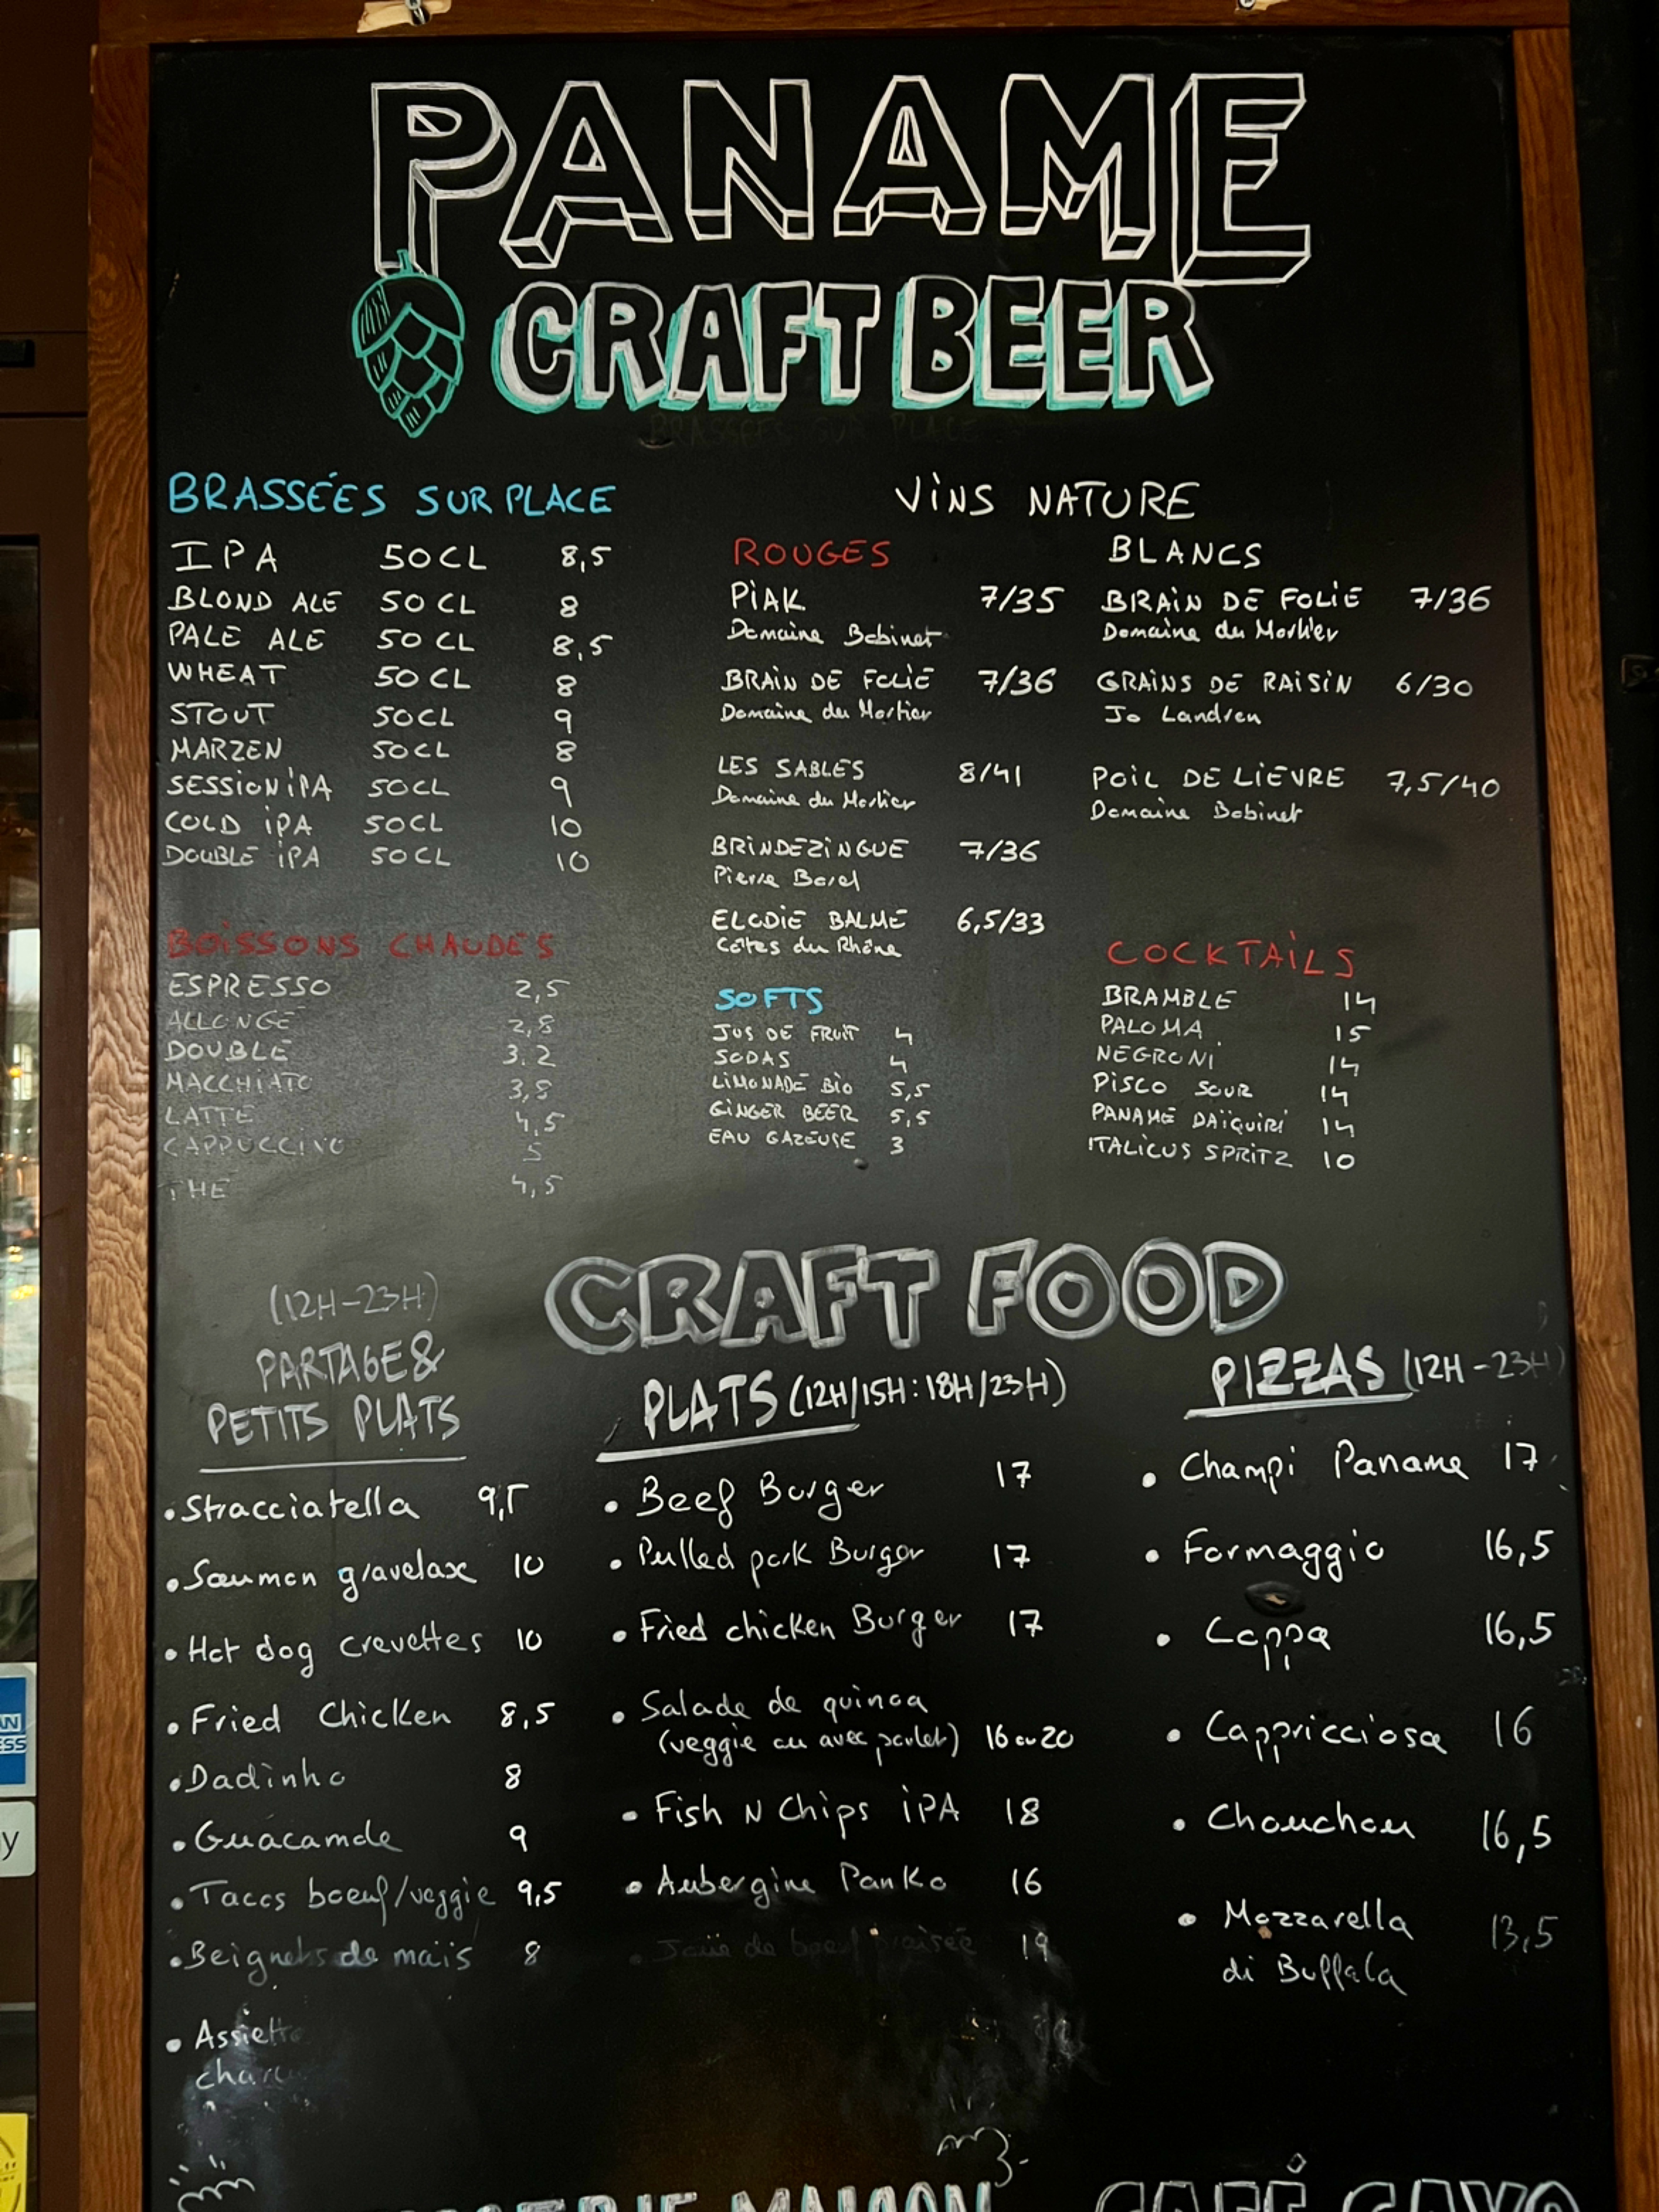 PANAME
CRAFT BEER
BRASSÉES SUR PLACE
BRASSÉES SUR PLACE
IPA 50CL 8,5
BLOND ALE 50CL 8
PALE ALE 50CL 8,5
WHEAT 50CL 8
STOUT 50CL 9
MARZEN 50CL 8
SESSION IPA 50CL 9
COLD IPA 50CL 10
DOUBLE IPA 50CL 10
BOISSONS CHAUDES
ESPRESSO 2,5
ALLONGÉ 2,8
DOUBLE 3.2
MACCHIATO 3,8
LATTE 4,5
CAPPUCCINO 5
THE 4,5
VINS NATURE
ROUGES
PIAK 7/35
Domaine Bobinet
BRAIN DE FOLIE 7/36
Domaine du Mortier
LES SABLES 8/41
Domaine du Mortier
BRINDEZINGUE 7/36
Pierre Borel
ELODIE BALME 6,5/33
Côtes du Rhône
BLANCS
BRAIN DE FOLIE 7/36
Domaine du Mortier
GRAINS DE RAISIN 6/30
Jo Landron
POIL DE LIEVRE 7,5/40
Domaine Bobinet
SOFTS
JUS DE FRUIT 4
SODAS 4
LIMONADE BIO 5,5
GINGER BEER 5,5
EAU GAZEUSE 3
COCKTAILS
BRAMBLE 14
PALOMA 15
NEGRONI 14
PISCO SOUR 14
PANAME DAÏQUIRI 14
ITALICUS SPRITZ 10
CRAFT FOOD
(12H-23H)
PARTAGE &
PETITS PLATS
• Stracciatella 9,5
• Saumon gravelax 10
• Hot dog crevettes 10
• Fried Chicken 8,5
• Dadinho 8
• Guacamole 9
• Tacos boeuf/veggie 9,5
• Beignets de maïs 8
• Assiette
PLATS (12H/15H:18H/23H)
• Beef Burger 17
• Pulled pork Burger 17
• Fried chicken Burger 17
• Salade de quinoa
(veggie ou avec poulet) 16 ou 20
• Fish N Chips IPA 18
• Aubergine Panko 16
• Joue de boeuf braisée 19
PIZZAS (12H-23H)
• Champi Paname 17
• Formaggio 16,5
• Coppa 16,5
• Cappricciosa 16
• Chouchou 16,5
• Mozzarella 13,5
di Buffala
MAISON
CAFÉ